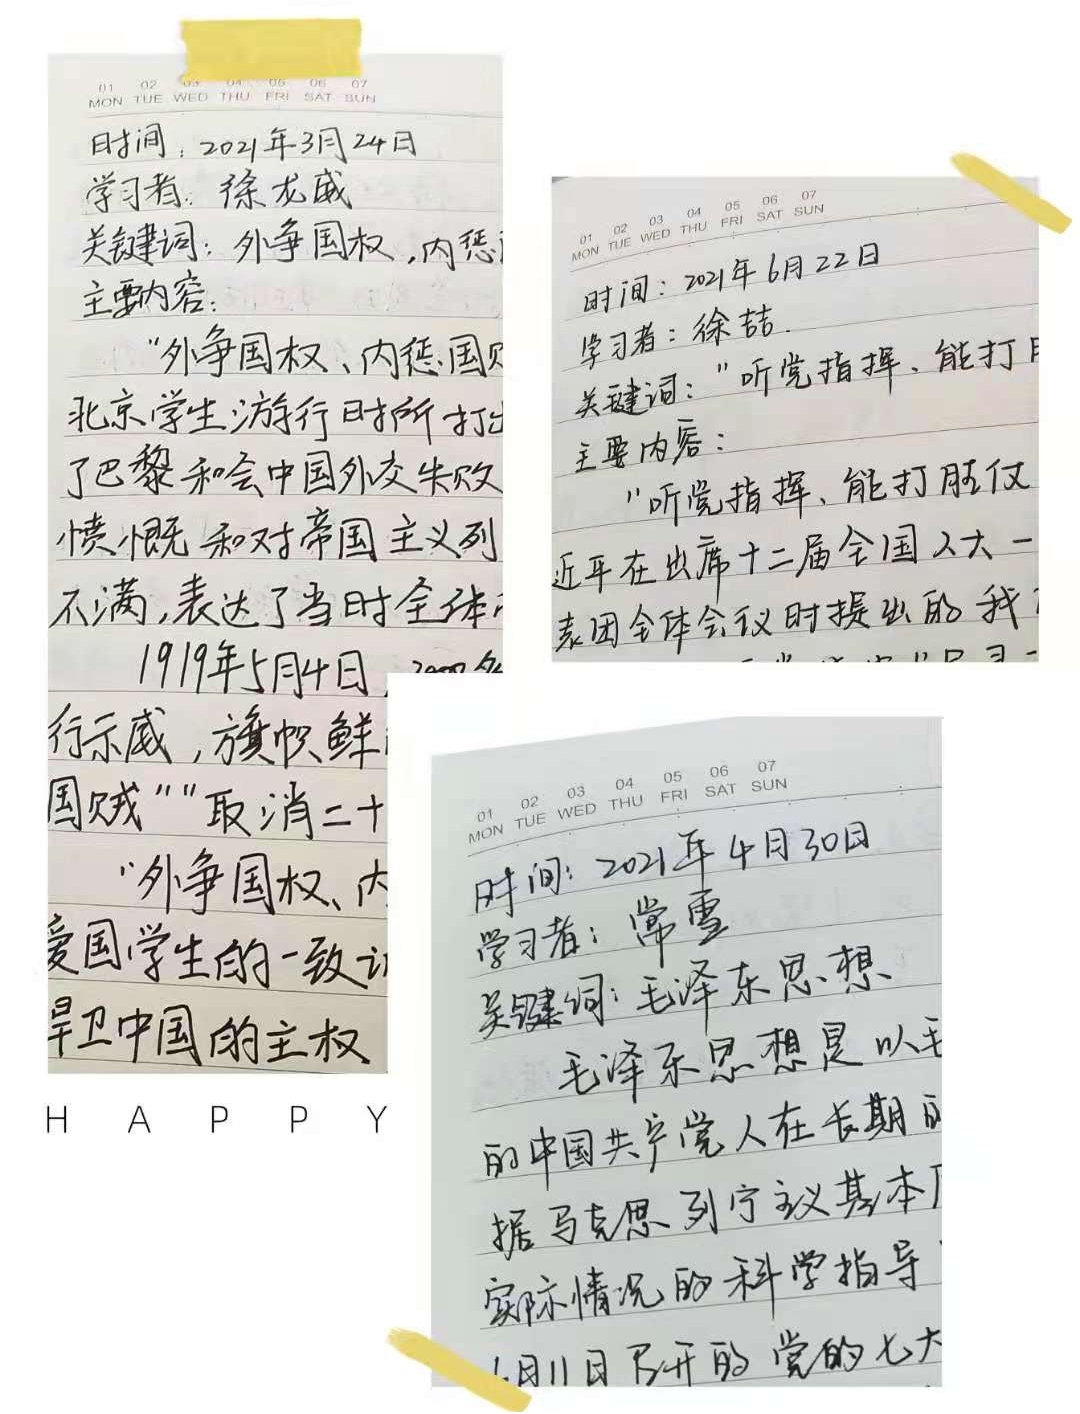 01 02 03 04 05 06 07
MON TUE WED THU FRI SAT SUN
时间：2021年3月24日
学习者：徐龙威
关键词：外争国权，内惩
主要内容：
"外争国权、内惩国贼
北京学生游行时所打出
了巴黎和会中国外交失败
愤慨和对帝国主义列
不满，表达了当时全体
1919年5月4日，
行示威，旗帜鲜
国贼""取消二十
"外争国权、内
爱国学生的一致
捍卫中国的主权
HAPPY
01 02 03 04 05 06 07
MON TUE WED THU FRI SAT SUN
时间：2021年6月22日
学习者：徐喆
关键词："听党指挥、能打
主要内容：
"听党指挥、能打胜仗
近平在出席十二届全国人大一
表团全体会议时提出的我
01 02 03 04 05 06 07
MON TUE WED THU FRI SAT SUN
时间：2021年4月30日
学习者：常雪
关键词：毛泽东思想
毛泽东思想是以毛
的中国共产党人在长期
据马克思列宁主义基本
实际情况的科学指导
6月11日召开的党的七大